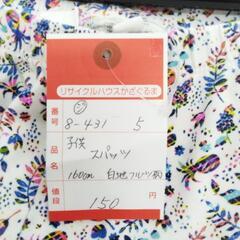 リサイクルハウスかざぐるま
番号 8-431 5
品名 子供
スパッツ
160cm 白地フルーツ柄
値段 150円